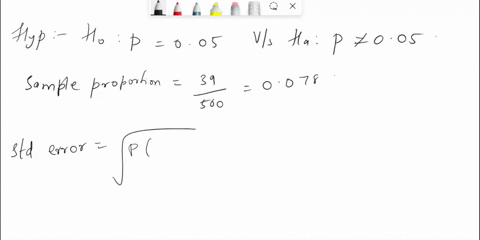 Hyp:- H₀ : p = 0.05 V/s Ha : p ≠ 0.05
Sample proportion = 39/500 = 0.078
Std error = √p(